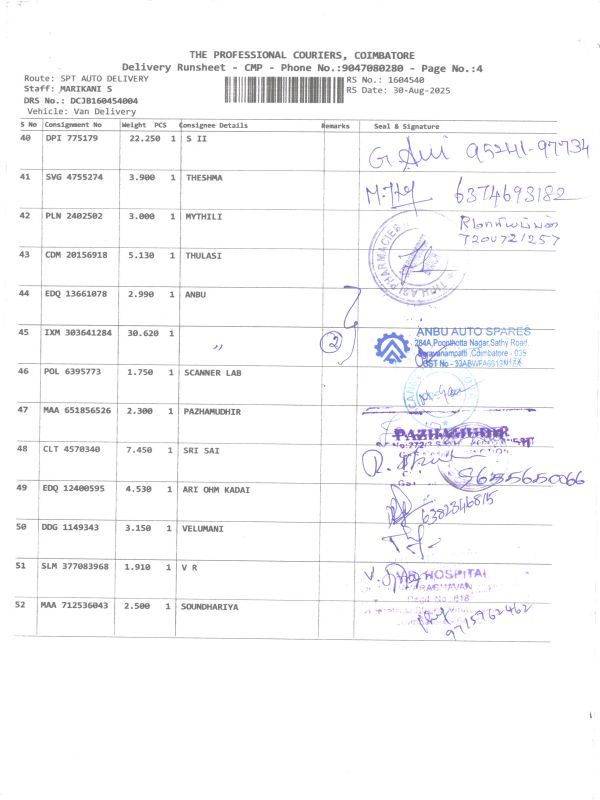 THE PROFESSIONAL COURIERS, COIMBATORE
Delivery Runsheet - CMP - Phone No.:9047080280 - Page No.:4
Route: SPT AUTO DELIVERY RS No.: 1604540
Staff: MARIKANI S RS Date: 30-Aug-2025
DRS No.: DCJB160454004
Vehicle: Van Delivery
S No Consignment No Weight PCS Consignee Details Remarks Seal & Signature
40 DPI 775179 22.250 1 S II 95241-97734
41 SVG 4755274 3.900 1 THESHMA 6374693182
42 PLN 2402502 3.000 1 MYTHILI 7200721257
43 CDM 20156918 5.130 1 THULASI THULASI PHARMACIES
44 EDQ 13661078 2.990 1 ANBU
45 IXM 303641284 30.620 1 ,, 2 ANBU AUTO SPARES
284A,Poopthotta Nagar,Sathy Road,
Saravanampatti ,Coimbatore - 035
GST No - 33ABWFA6613N1ZX
46 POL 6395773 1.750 1 SCANNER LAB
47 MAA 651856526 2.300 1 PAZHAMUDHIR
PAZHAMUDHIR
48 CLT 4570340 7.450 1 SRI SAI 9655650066
49 EDQ 12400595 4.530 1 ARI OHM KADAI 6382346815
50 DDG 1149343 3.150 1 VELUMANI
51 SLM 377083968 1.910 1 V R HOSPITAL
RAGHAVAN
Regd No. 618
52 MAA 712536043 2.500 1 SOUNDHARIYA 9715962462